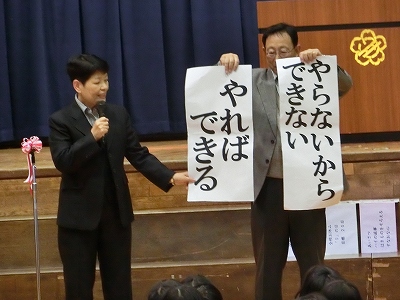 やらないから
できない
やれば
できる